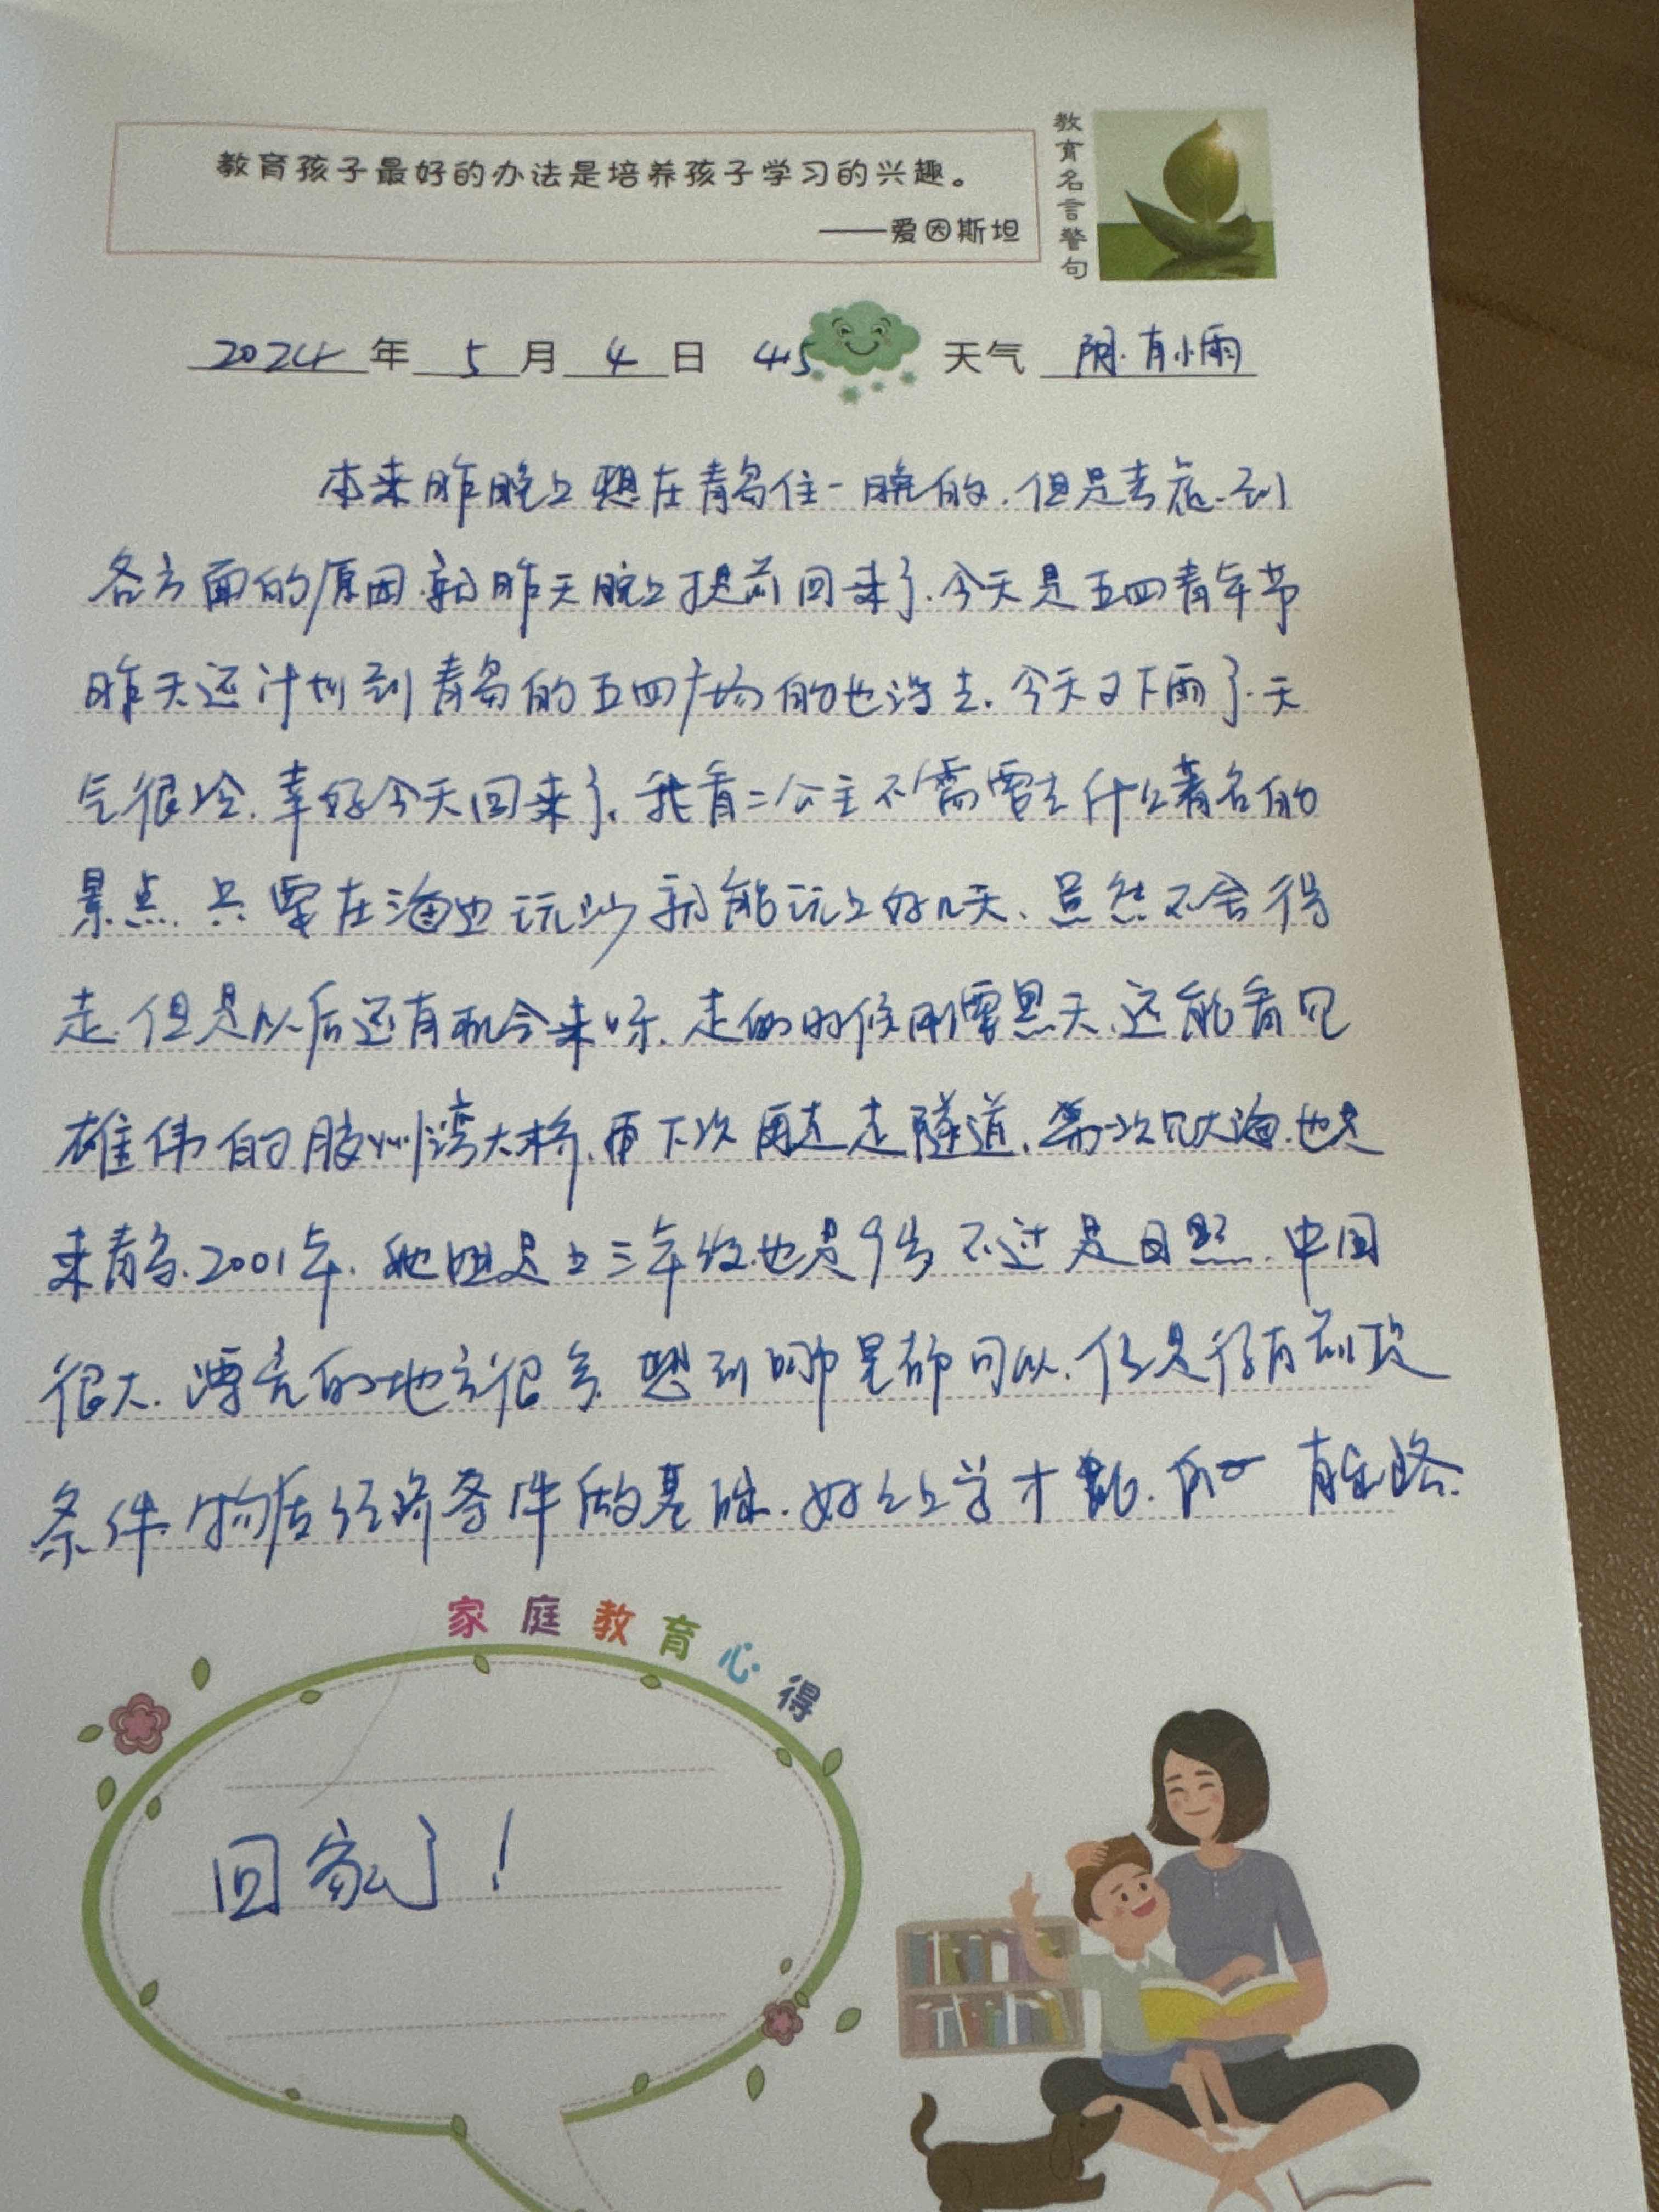 教育孩子最好的办法是培养孩子学习的兴趣。
——爱因斯坦
教育名言警句
2024年5月4日 45 天气 阴.有小雨
本来昨晚上想在青岛住一晚的.但是考虑到
各方面的原因.就昨天晚上提前回来了.今天是五四青年节
昨天还计划到青岛的五四广场的也没去.今天又下雨了.天
气很冷.幸好今天回来了.我看二公主不需要去什么著名的
景点.只要在海边玩沙就能玩上好几天.虽然不舍得
走.但是以后还有机会来呀.走的时候刚要黑天.还能看见
雄伟的胶州湾大桥.下次再走走隧道.第一次见大海.也是
来青岛.2001年.她姐是上三年级.也是9岁不过是日照.中国
很大.漂亮的地方很多.想到哪里都可以.但是得有前提
条件.物质经济条件做基础.好好上学才能.有出路.
家庭教育心得
回家了!